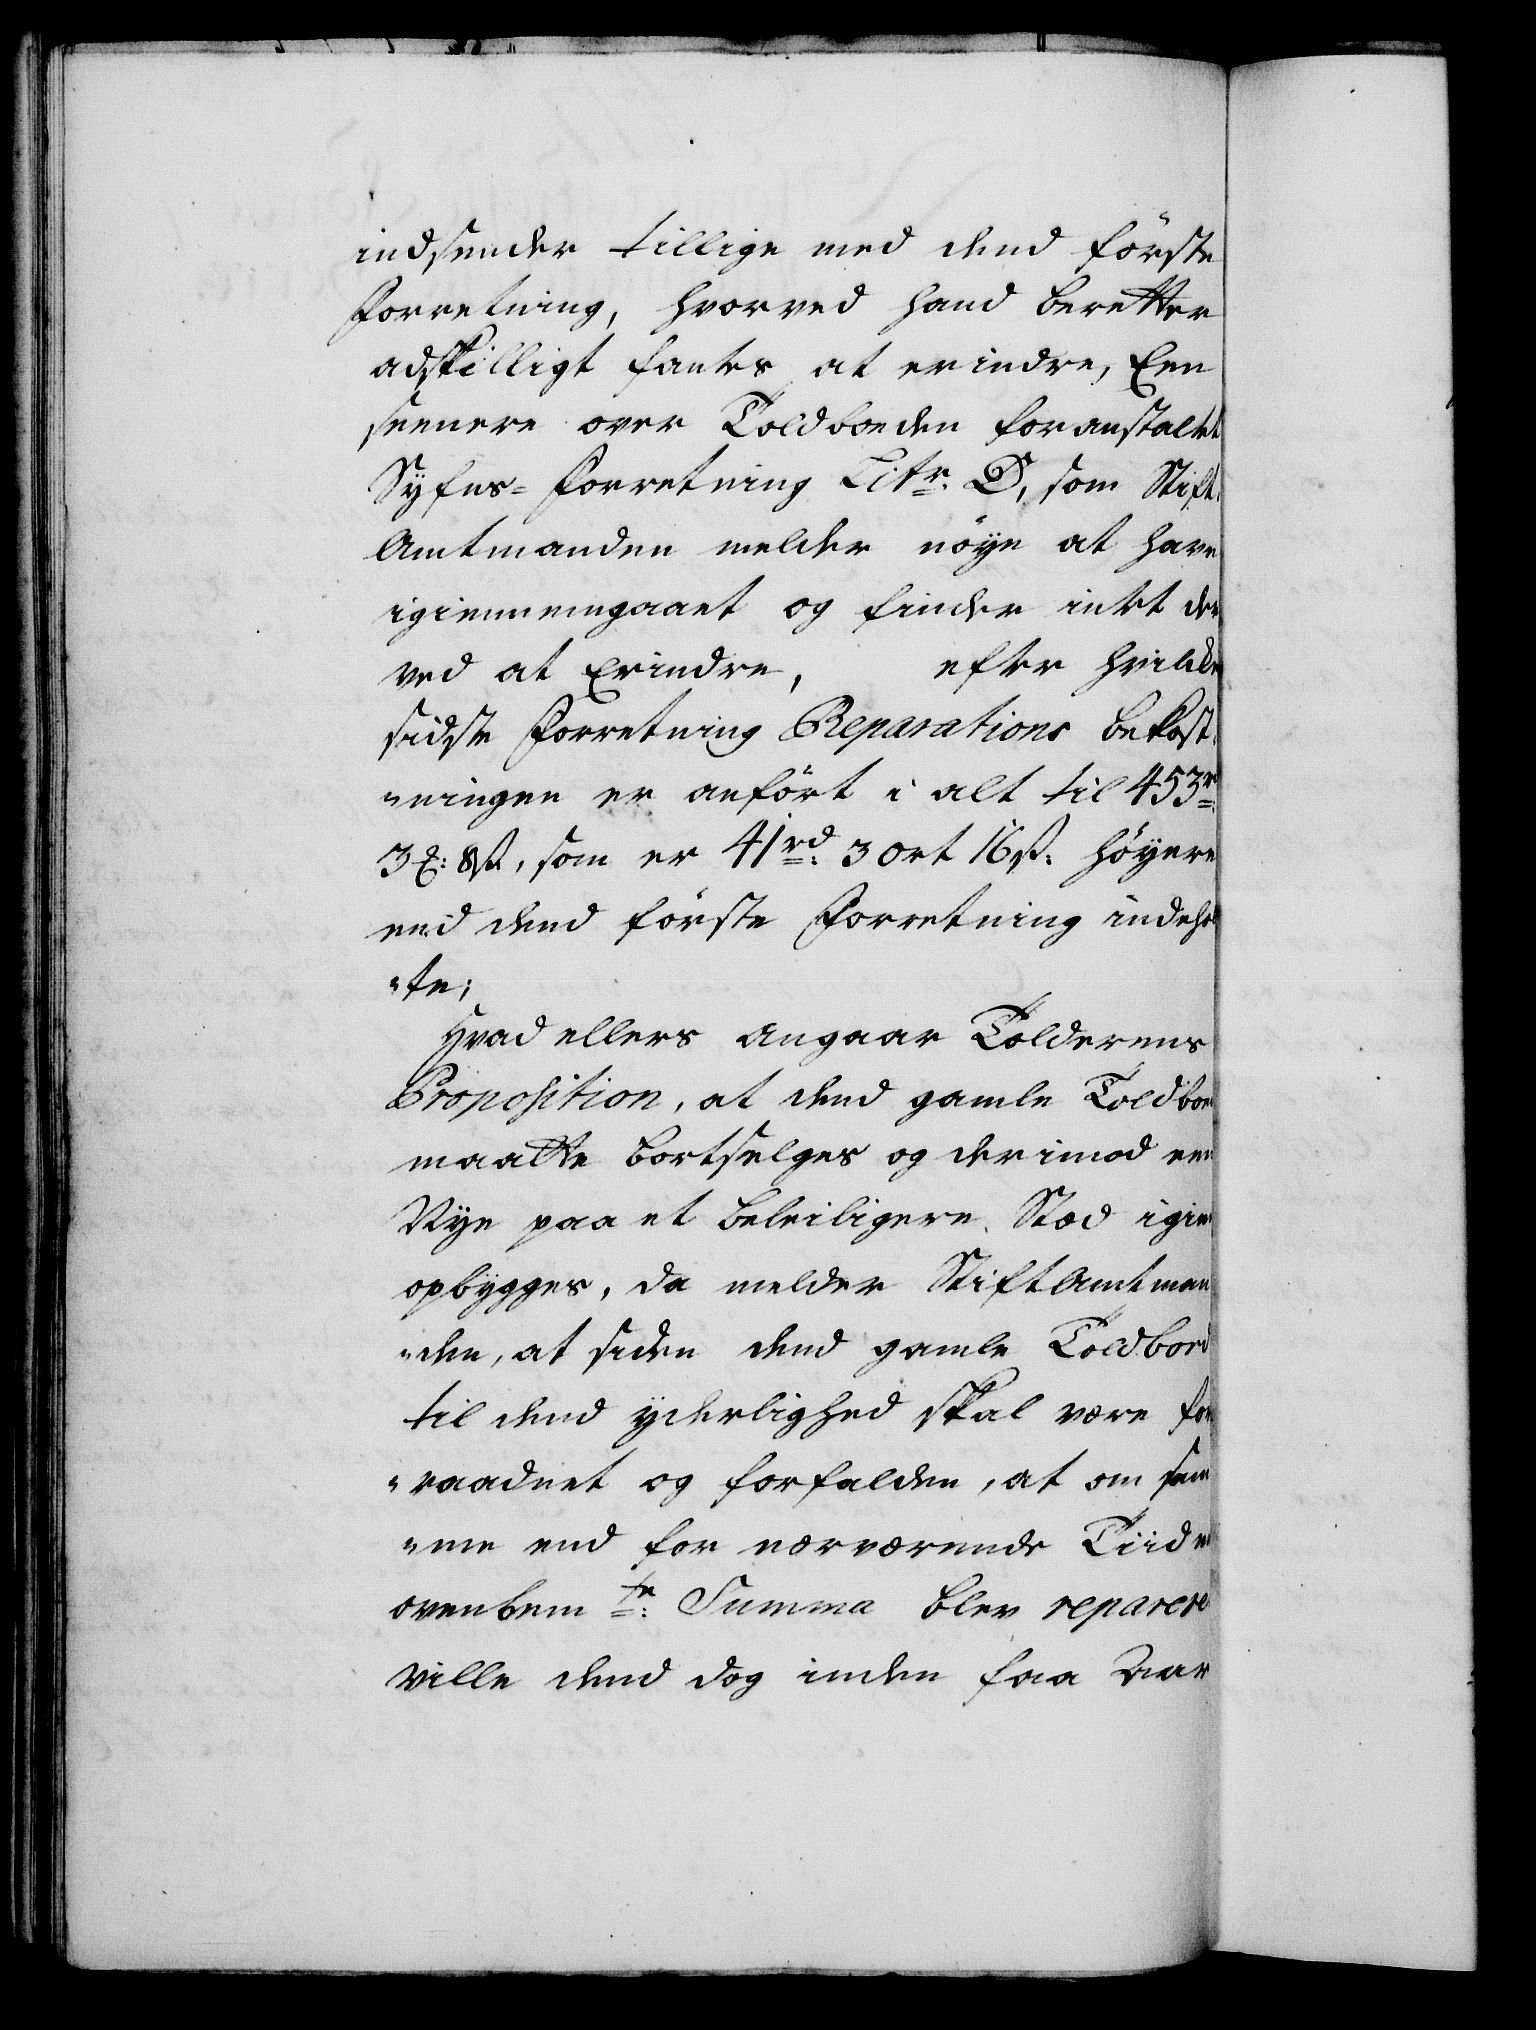 indsender tillige med dend förste
Forretning, hvorved hand beretter
adskilligt fantes at erindre, Een
seenere over Toldboeden foranstaltet
Syfns=Forretning Litr. D, som Stift¬
Amtmanden melder nöye at have
igiennemgaaet og finder intet der
ved at Erindre, efter hvilken
sidste Forretning Reparations bekost¬
"ningen er anfört i alt til 453 r
3 : 8 ß, som er 41 rd: 3 ort 16 ß: höyere
end dend förste Forretning indeholt
"te;
Hvad ellers angaar Tolderens
Proposition, at dend gamle Toldboe
maatte bortselges og derimod een
Nye paa et beleiligere Stæd igien
opbygges, da melder Stift Amtman
"den, at siden dend gamle Toldbod
til dend yderlighed skal være for
"raadnet og forfalden, at om sam
"me end for nærværende Tiid
ovenbem te: Summa blev reparere
ville dend dog inden faa Aar